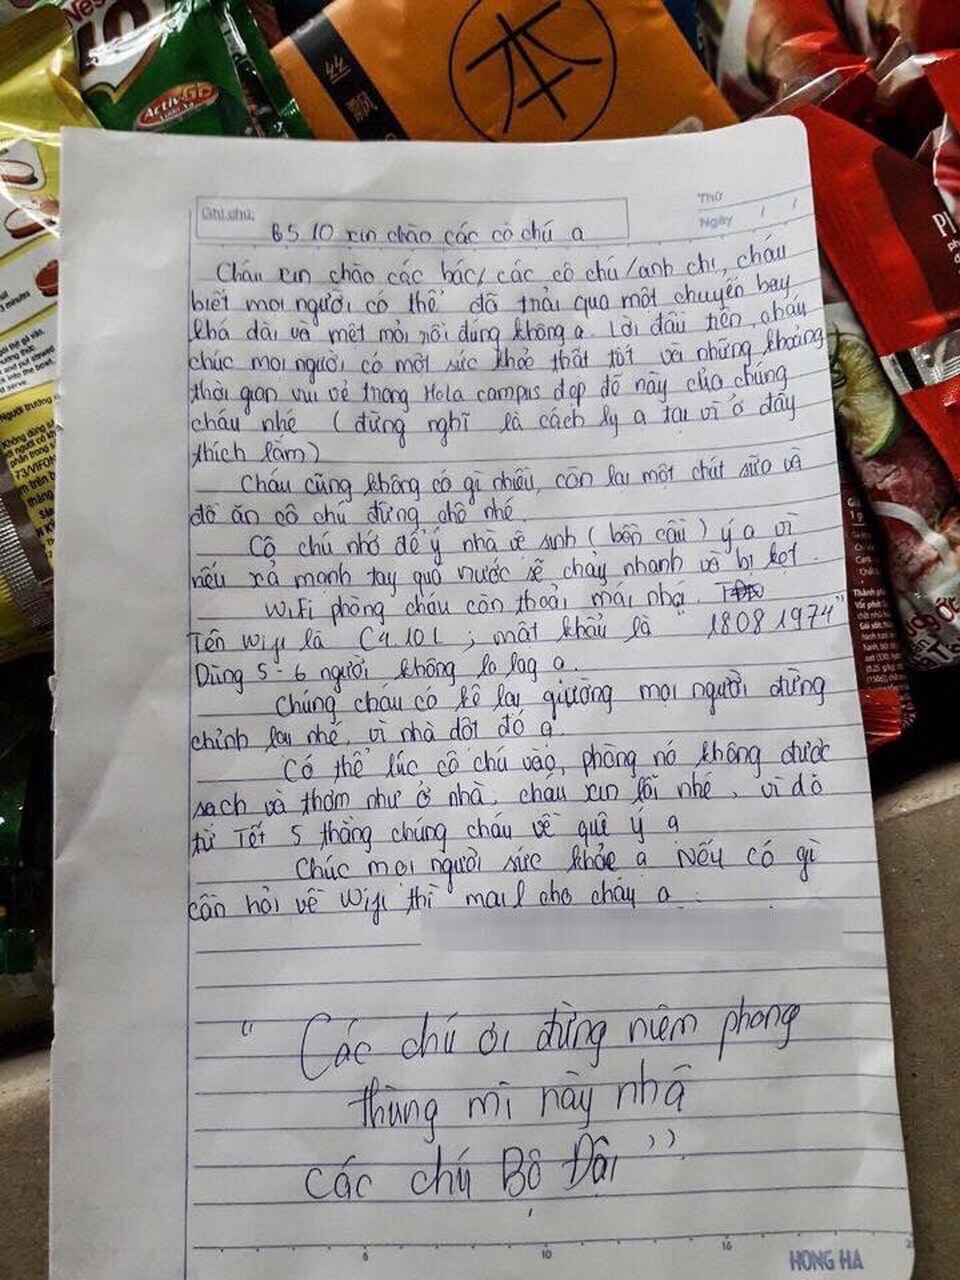 Nes
ActivGo
丝
飘
本
minutes
Người trưởng
73/VIFON
PI
Ghi chú:
Thứ
Ngày / /
B510 xin chào các cô chú ạ
Cháu xin chào các bác, các cô chú/anh chị, cháu
biết mọi người có thể đã trải qua một chuyến bay
khá dài và mệt mỏi rồi đúng không ạ. Lời đầu tiên, cháu
chúc mọi người có một sức khỏe thật tốt và những khoảng
thời gian vui vẻ trong Hola campus đẹp đẽ này của chúng
cháu nhé (đừng nghĩ là cách ly ạ tại vì ở đây
thích lắm)
Cháu cũng không có gì nhiều, còn lại một chút sữa và
đồ ăn cô chú đừng chê nhé
Cô chú nhớ để ý nhà vệ sinh (bồn cầu) ý ạ vì
nếu xả mạnh tay quá nước sẽ chảy nhanh và bị kẹt.
Wifi phòng cháu còn thoải mái nhá.
Tên wifi là C4.10L; mật khẩu là "18081974"
Dùng 5-6 người không lo lag ạ.
Chúng cháu có kê lại giường mọi người đừng
chỉnh lại nhé, vì nhà dột đó ạ.
Có thể lúc cô chú vào, phòng nó không được
sạch và thơm như ở nhà, cháu xin lỗi nhé, vì đã
từ Tết 5 tháng chúng cháu về quê ý ạ
Chúc mọi người sức khỏe ạ Nếu có gì
cần hỏi về wifi thì mail cho cháu ạ.
"Các chú ơi đừng niêm phong
thùng mì này nhá
các chú Bộ Đội"
6 10 16
HONG HA